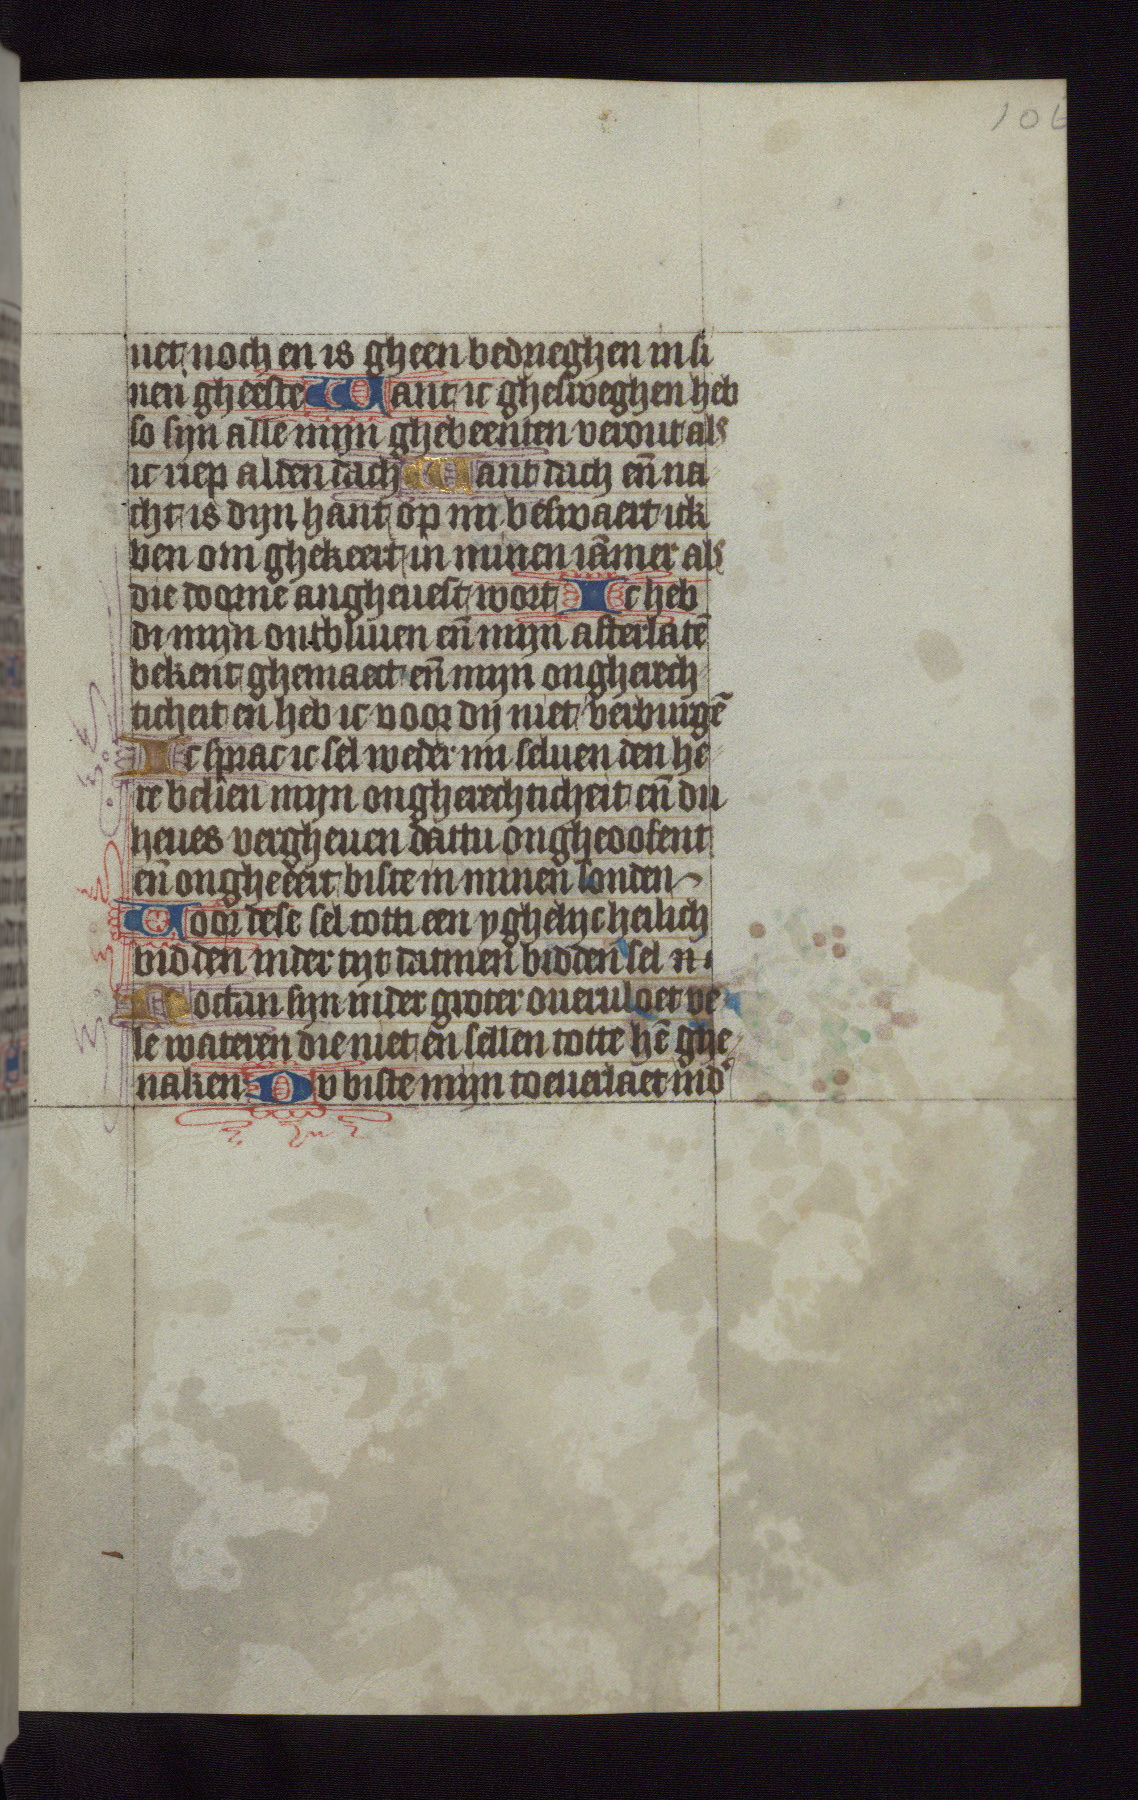 106
uet noch en is gheen bedrieghen in si
nen gheeste Want ic ghesweghen heb
so sijn alle mijn ghebeenten verout als
ic riep al den dach Want dach en̄ na
cht is dijn hant op mi beswaert ick
ben om ghekeert in minen iāmer als
die doorne angheuest wort Ic heb
di mijn ontbliuen en̄ mijn afterlatē
bekent ghemaect en̄ mijn ongherech
ticheit en heb ic voor dij niet verburgē
Ic sprac ic sel weder mi seluen den he
re belien mijn ongherechticheit en̄ du
heues vergheuen dattu ongheoofent
en̄ ongheeert biste in minen sonden
Voor dese sel totti een yghelijc heilich
bidden in der tijt datmen bidden sel
Nochtan sijn in der groter oueruloet ve
le wateren die niet en sellen totte hē ghe
naken Du biste mijn toeuerlaet in d'